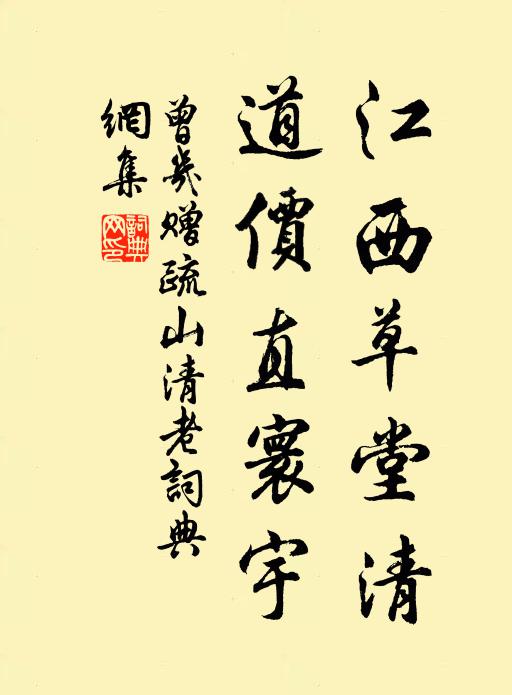 江西草堂清
道價直寰宇
曾幾贈疏山清老詞典
網集
詞典
网印